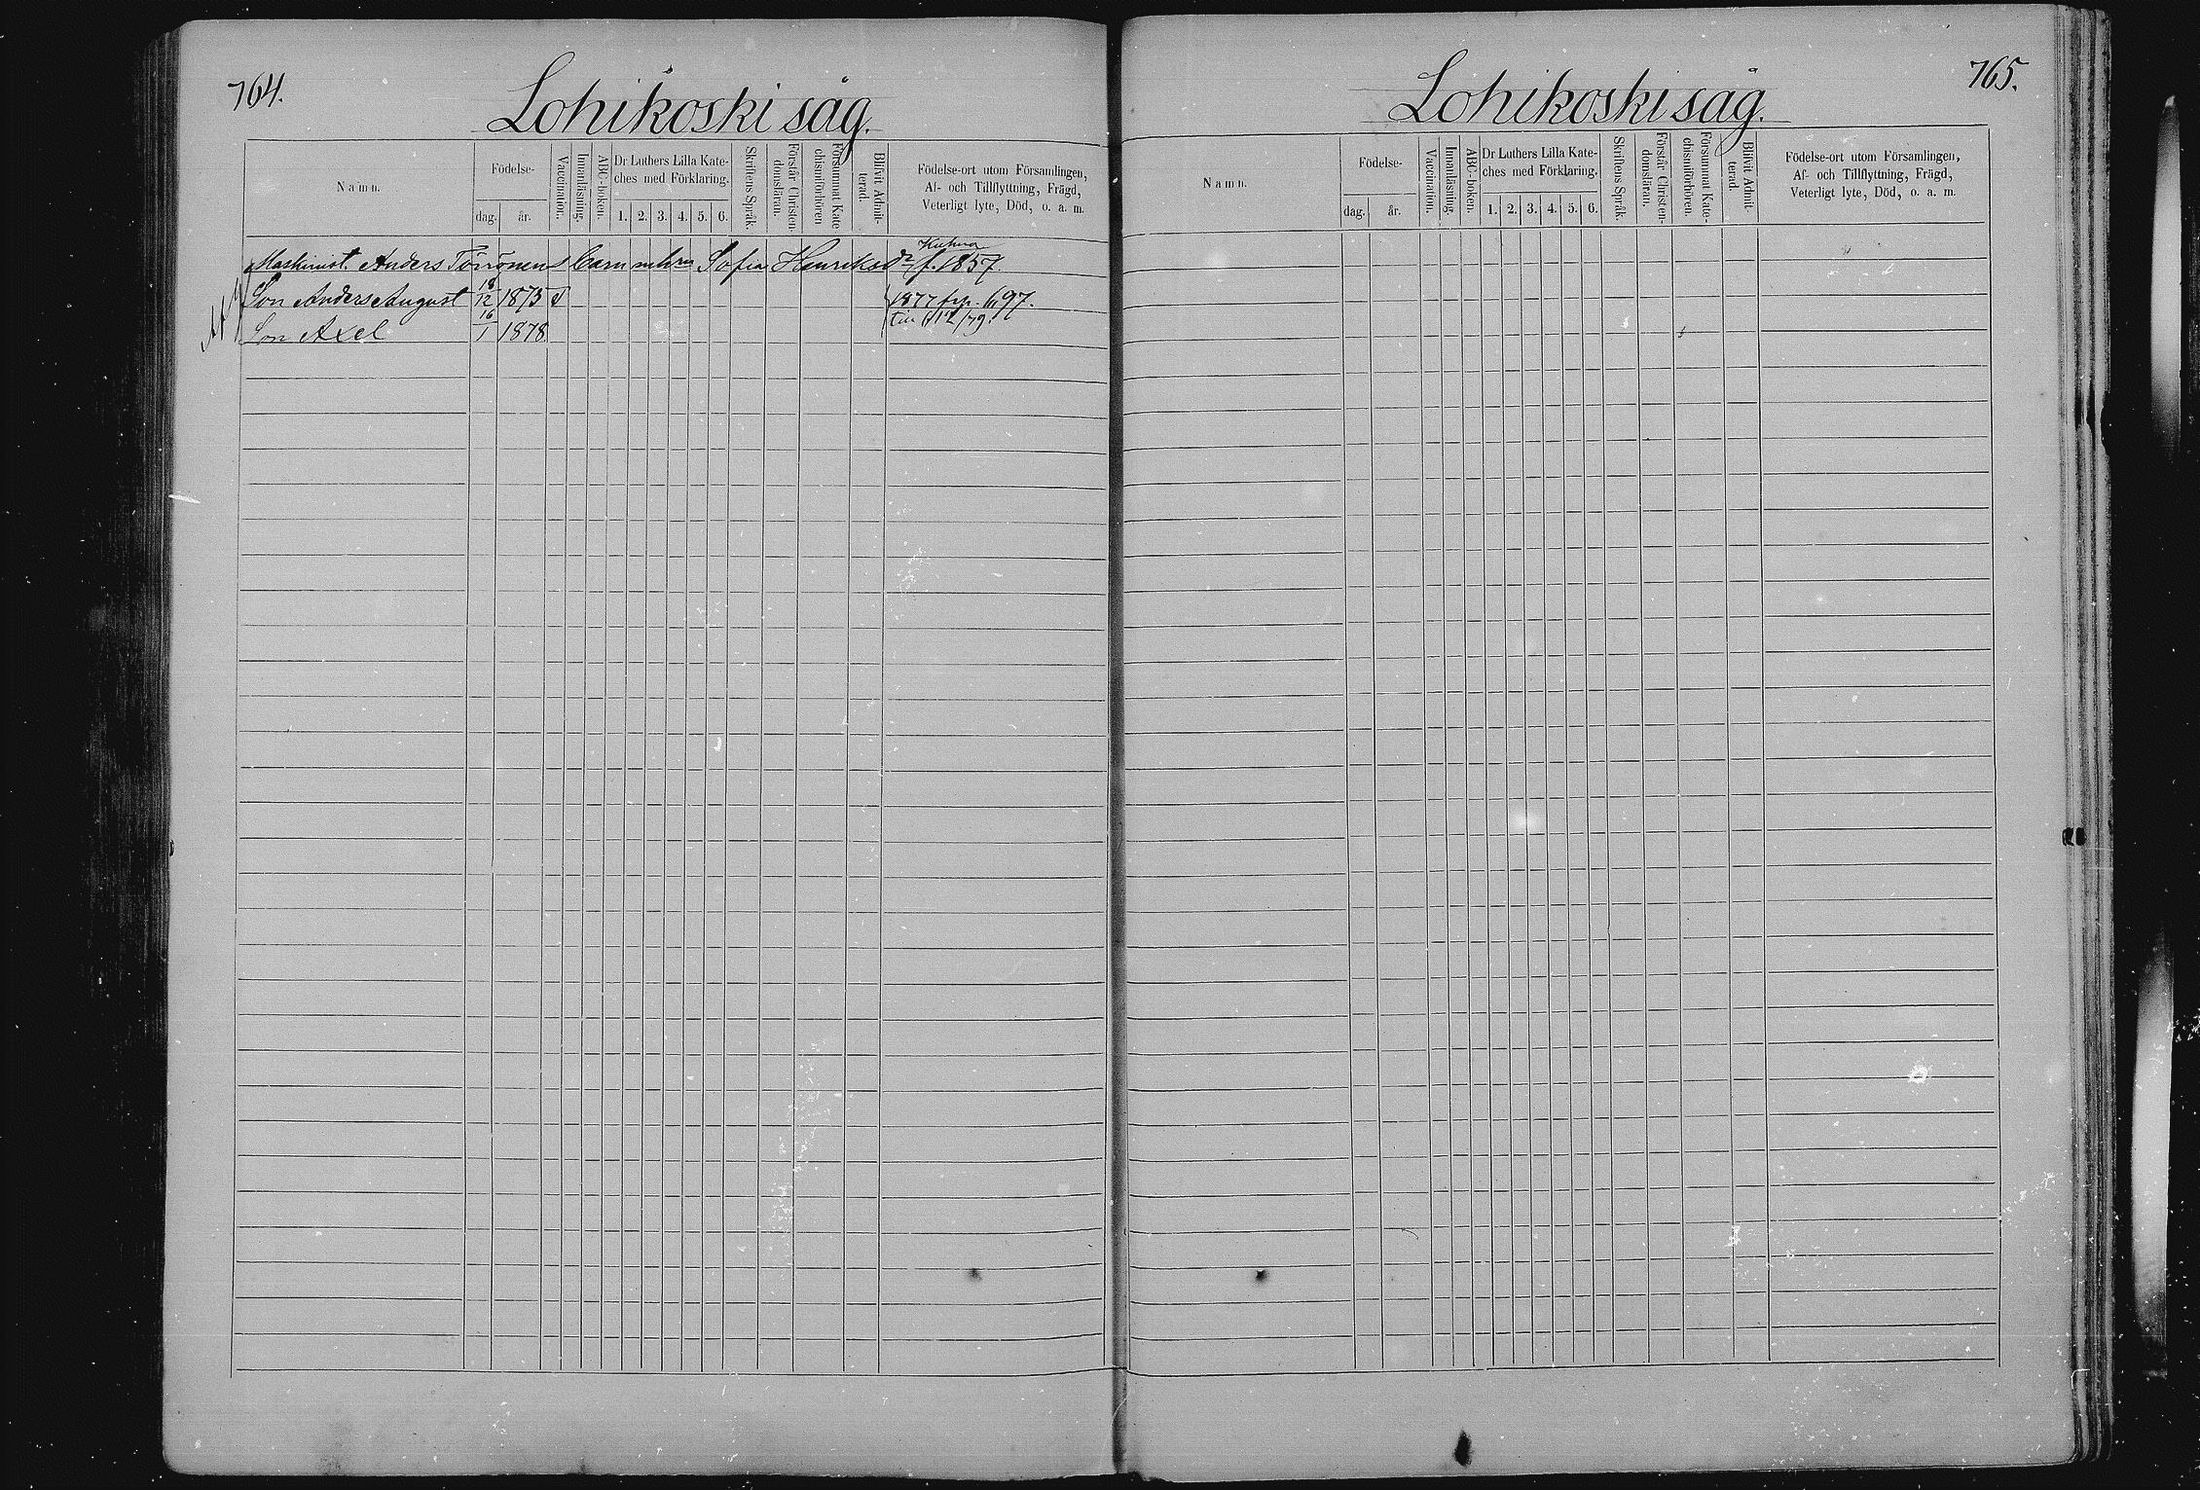 764.
Lohikoski såg.
Namn.
Födelse-
dag.
år.
Vaccination.
Innanläsning.
ABC-boken.
Dr Luthers Lilla Kate-
ches med Förklaring.
1. 2. 3. 4. 5. 6.
Skriftens Språk.
Förstår Christen-
domsläran.
Försummat Kate
chismiförhören
Blifvit Admit-
terad.
Födelse-ort utom Församlingen,
Af- och Tillflyttning, Frägd,
Veterligt lyte, Död, o. a. m.
Maskinist. Anders Törrönens Barn
Sofia Henriksdr f. 1857.
Son Anders August 18/12 1875
1877 697.
Son Axel 16/1 1878
till /79.
765.
Lohikoski såg.
Namn.
Födelse-
dag.
år.
Vaccination.
Innanläsning.
ABC-boken.
Dr Luthers Lilla Kate-
ches med Förklaring.
1. 2. 3. 4. 5. 6.
Skriftens Språk.
Förstår Christen-
domsläran.
Försummat Kate-
chismiförhören.
Blifvit Admit-
terad.
Födelse-ort utom Församlingen,
Af- och Tillflyttning, Frägd,
Veterligt lyte, Död, o. a. m.